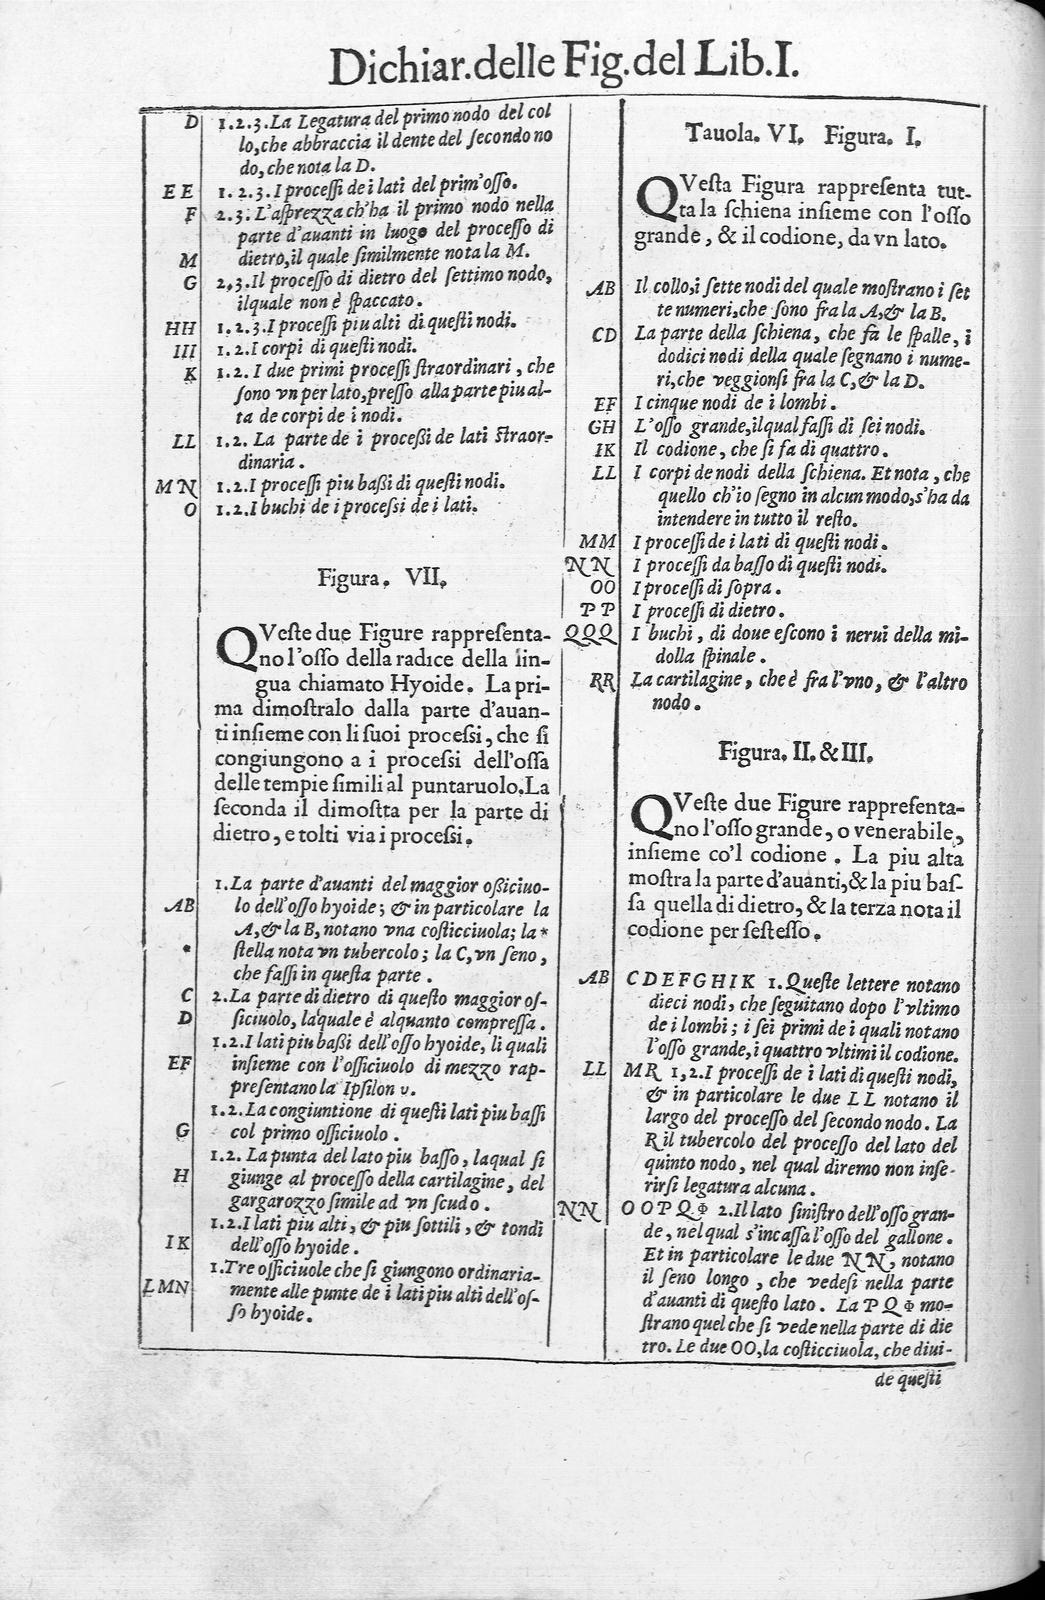 Dichiar. delle Fig. del Lib. I.
D 1.2.3. La Legatura del primo nodo del col
lo, che abbraccia il dente del ſecondo no
do, che nota la D.
EE 1.2.3. I proceſſi de i lati del prim'oſſo.
F 2.3. L'aſprezza ch'ha il primo nodo nella
parte d'auanti in luogo del proceſſo di
M dietro, il quale ſimilmente nota la M.
G 2,3. Il proceſſo di dietro del ſettimo nodo,
ilquale non è ſpaccato.
HH 1.2.3. I proceſſi piu alti di queſti nodi.
III 1.2. I corpi di queſti nodi.
K 1.2. I due primi proceſſi ſtraordinari, che
ſono vn per lato, preſſo alla parte piu al-
ta de corpi de i nodi.
LL 1.2. La parte de i proceßi de lati ſtraor-
dinaria.
MN 1.2. I proceſſi piu baßi di queſti nodi.
O 1.2. I buchi de i proceſsi de i lati.
Figura. VII.
QVeſte due Figure rappreſenta-
no l'oſſo della radice della lin-
gua chiamato Hyoide. La pri-
ma dimoſtralo dalla parte d'auan-
ti inſieme con li ſuoi proceſsi, che ſi
congiungono a i proceſsi dell'oſſa
delle tempie ſimili al puntaruolo. La
ſeconda il dimoſtta per la parte di
dietro, e tolti via i proceſsi.
1. La parte d'auanti del maggior oßiciuo-
AB lo dell'oſſo hyoide; & in particolare la
A, & la B, notano vna coſticciuola; la *
* ſtella nota vn tubercolo; la C, vn ſeno,
che faſſi in queſta parte.
C 2. La parte di dietro di queſto maggior oſ-
D ſiciuolo, laquale è alquanto compreſſa.
1.2. I lati piu baßi dell'oſſo hyoide, li quali
EF inſieme con l'officiuolo di mezzo rap-
preſentano la Ipſilon υ.
1.2. La congiuntione di queſti lati piu baſſi
G col primo officiuolo.
1.2. La punta del lato piu baſſo, laqual ſi
H giunge al proceſſo della cartilagine, del
gargarozzo ſimile ad vn ſcudo.
1.2. I lati piu alti, & piu ſottili, & tondi
IK dell'oſſo hyoide.
1. Tre officiuole che ſi giungono ordinaria-
LMN mente alle punte de i lati piu alti dell'oſ-
ſo hyoide.
Tauola. VI. Figura. I.
QVeſta Figura rappreſenta tut-
ta la ſchiena inſieme con l'oſſo
grande, & il codione, da vn lato.
AB Il collo, i ſette nodi del quale moſtrano i ſet
te numeri, che ſono fra la A, & la B.
CD La parte della ſchiena, che fa le ſpalle, i
dodici nodi della quale ſegnano i nume-
ri, che veggionſi fra la C, & la D.
EF I cinque nodi de i lombi.
GH L'oſſo grande, ilqual faſſi di ſei nodi.
IK Il codione, che ſi fa di quattro.
LL I corpi de nodi della ſchiena. Et nota, che
quello ch'io ſegno in alcun modo, s'ha da
intendere in tutto il reſto.
MM I proceſſi de i lati di queſti nodi.
NN I proceſſi da baſſo di queſti nodi.
OO I proceſſi di ſopra.
PP I proceſſi di dietro.
QQQ I buchi, di doue eſcono i nerui della mi-
dolla ſpinale.
RR La cartilagine, che è fra l'vno, & l'altro
nodo.
Figura. II. & III.
QVeſte due Figure rappreſenta-
no l'oſſo grande, o venerabile,
inſieme co'l codione. La piu alta
moſtra la parte d'auanti, & la piu baſ-
ſa quella di dietro, & la terza nota il
codione per ſeſteſſo.
AB CDEFGHIK 1. Queſte lettere notano
dieci nodi, che ſeguitano dopo l'vltimo
de i lombi; i ſei primi de i quali notano
l'oſſo grande, i quattro vltimi il codione.
LL MR 1,2. I proceſſi de i lati di queſti nodi,
& in particolare le due LL notano il
largo del proceſſo del ſecondo nodo. La
R il tubercolo del proceſſo del lato del
quinto nodo, nel qual diremo non inſe-
rirſi legatura alcuna.
NN OOPQΦ 2. Il lato ſiniſtro dell'oſſo gran-
de, nel qual s'incaſſa l'oſſo del gallone.
Et in particolare le due NN, notano
il ſeno longo, che vedeſi nella parte
d'auanti di queſto lato. La PQΦ mo-
ſtrano quel che ſi vede nella parte di die
tro. Le due OO, la coſticciuola, che diui-
de queſti